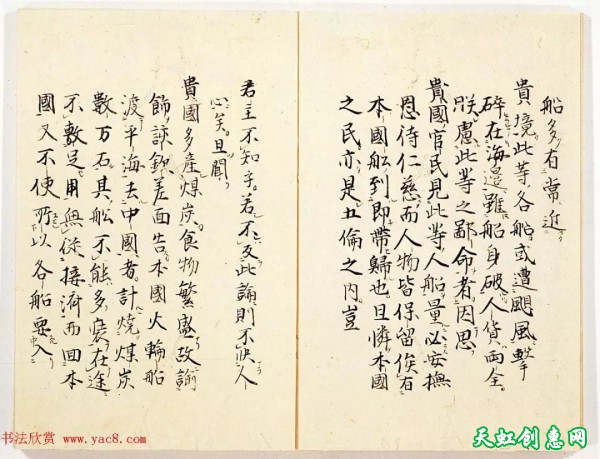 船多有常近
貴境此等各船或遭颶風擊
碎在海邊雖船身破人貨兩全
朕慮此等之鄙命者因思
貴國官民見此等人船量必安撫
恩待仁慈而人物皆保留俟有
本國船到即帶歸也且憐本國
之民亦是五倫之内豈
君主不知乎若不及此論則不快人
心矣且聞
貴國多產煤炭食物繁盛故諭
飭諒欽差面告本國火輪船
渡平海去中國者計燒煤炭
數万石其船不能多裝在途
不敷足用無從接濟而回本
國又不便所以各船要入
书法欣赏 www.yac8.com
天虹创意网